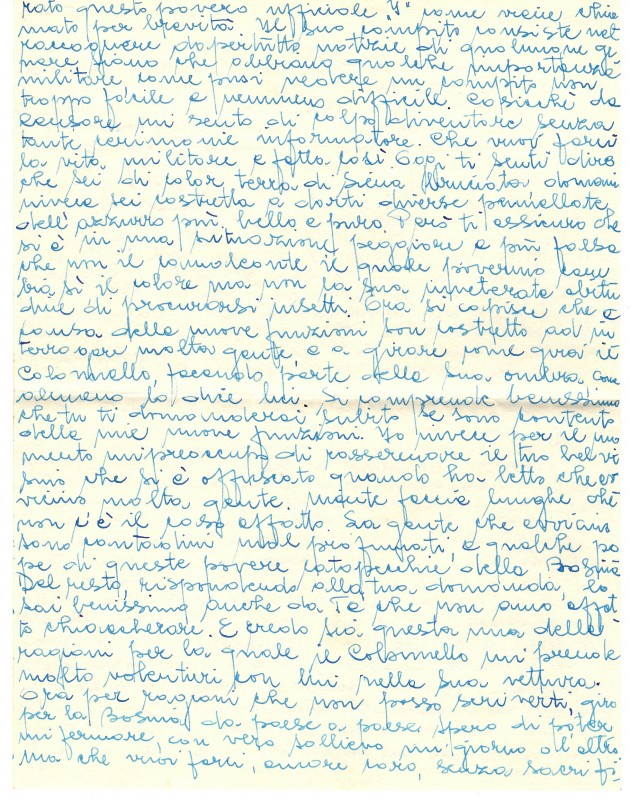 rato questo povero ufficiale "I" come viene chia
mato per brevità. Il suo compito consiste nel
raccogliere dapertutto notizie di qualunque ge
nere siano che abbiano qualche importanza
militare come puoi vedere un compito non
troppo facile e nemmeno difficile. Cosicchè da
censore mi sento di colpo diventare senza
tante cerimonie informatore. Che vuoi farci
la vita militare è fatta così. Oggi ti senti dire
che sei di color terra di Siena bruciata domani
invece sei costretta a darti diverse pennellate
dell'azzurro più bello e puro. Però ti assicuro che
si è in una situazione peggiore e più falsa
che non il camaleonte il quale poverino cam
bia sì il colore ma non la sua inveterata abitu
dine di procurarsi insetti. Ora si capisce che a
causa delle nuove funzioni son costretto ad in
terrogare molta gente e a girare come gira il
Colonnello, facendo parte della sua ombra come
almeno la dice lui. Si comprende benissimo
che tu ti domanderai subito se sono contento
delle mie nuove funzioni. Io invece per il mo
mento mi preoccupo di rasserenare il tuo bel vi
sino che si è offuscato quando ha letto che av
vicino molta gente. Niente faccie lunghe chè
non c'è il caso affatto. La gente che avvicino
sono contadini mal profumati, e qualche pa
pe di queste povere catapecchie della Bosnia
Del resto, rispondendo alla tua domanda, lo
sai benissimo anche da Te che non amo affat
to chiaccherare. E credo sia questa una delle
ragioni per la quale il Colonnello mi prende
molto volentieri con lui nella sua vettura.
Ora per ragioni che non posso scriverti, giro
per la Bosnia da paese a paese. Spero di poter
mi fermare, con vero sollievo un giorno o l'altro
ma che vuoi farci, amore caro, senza sacrifi-